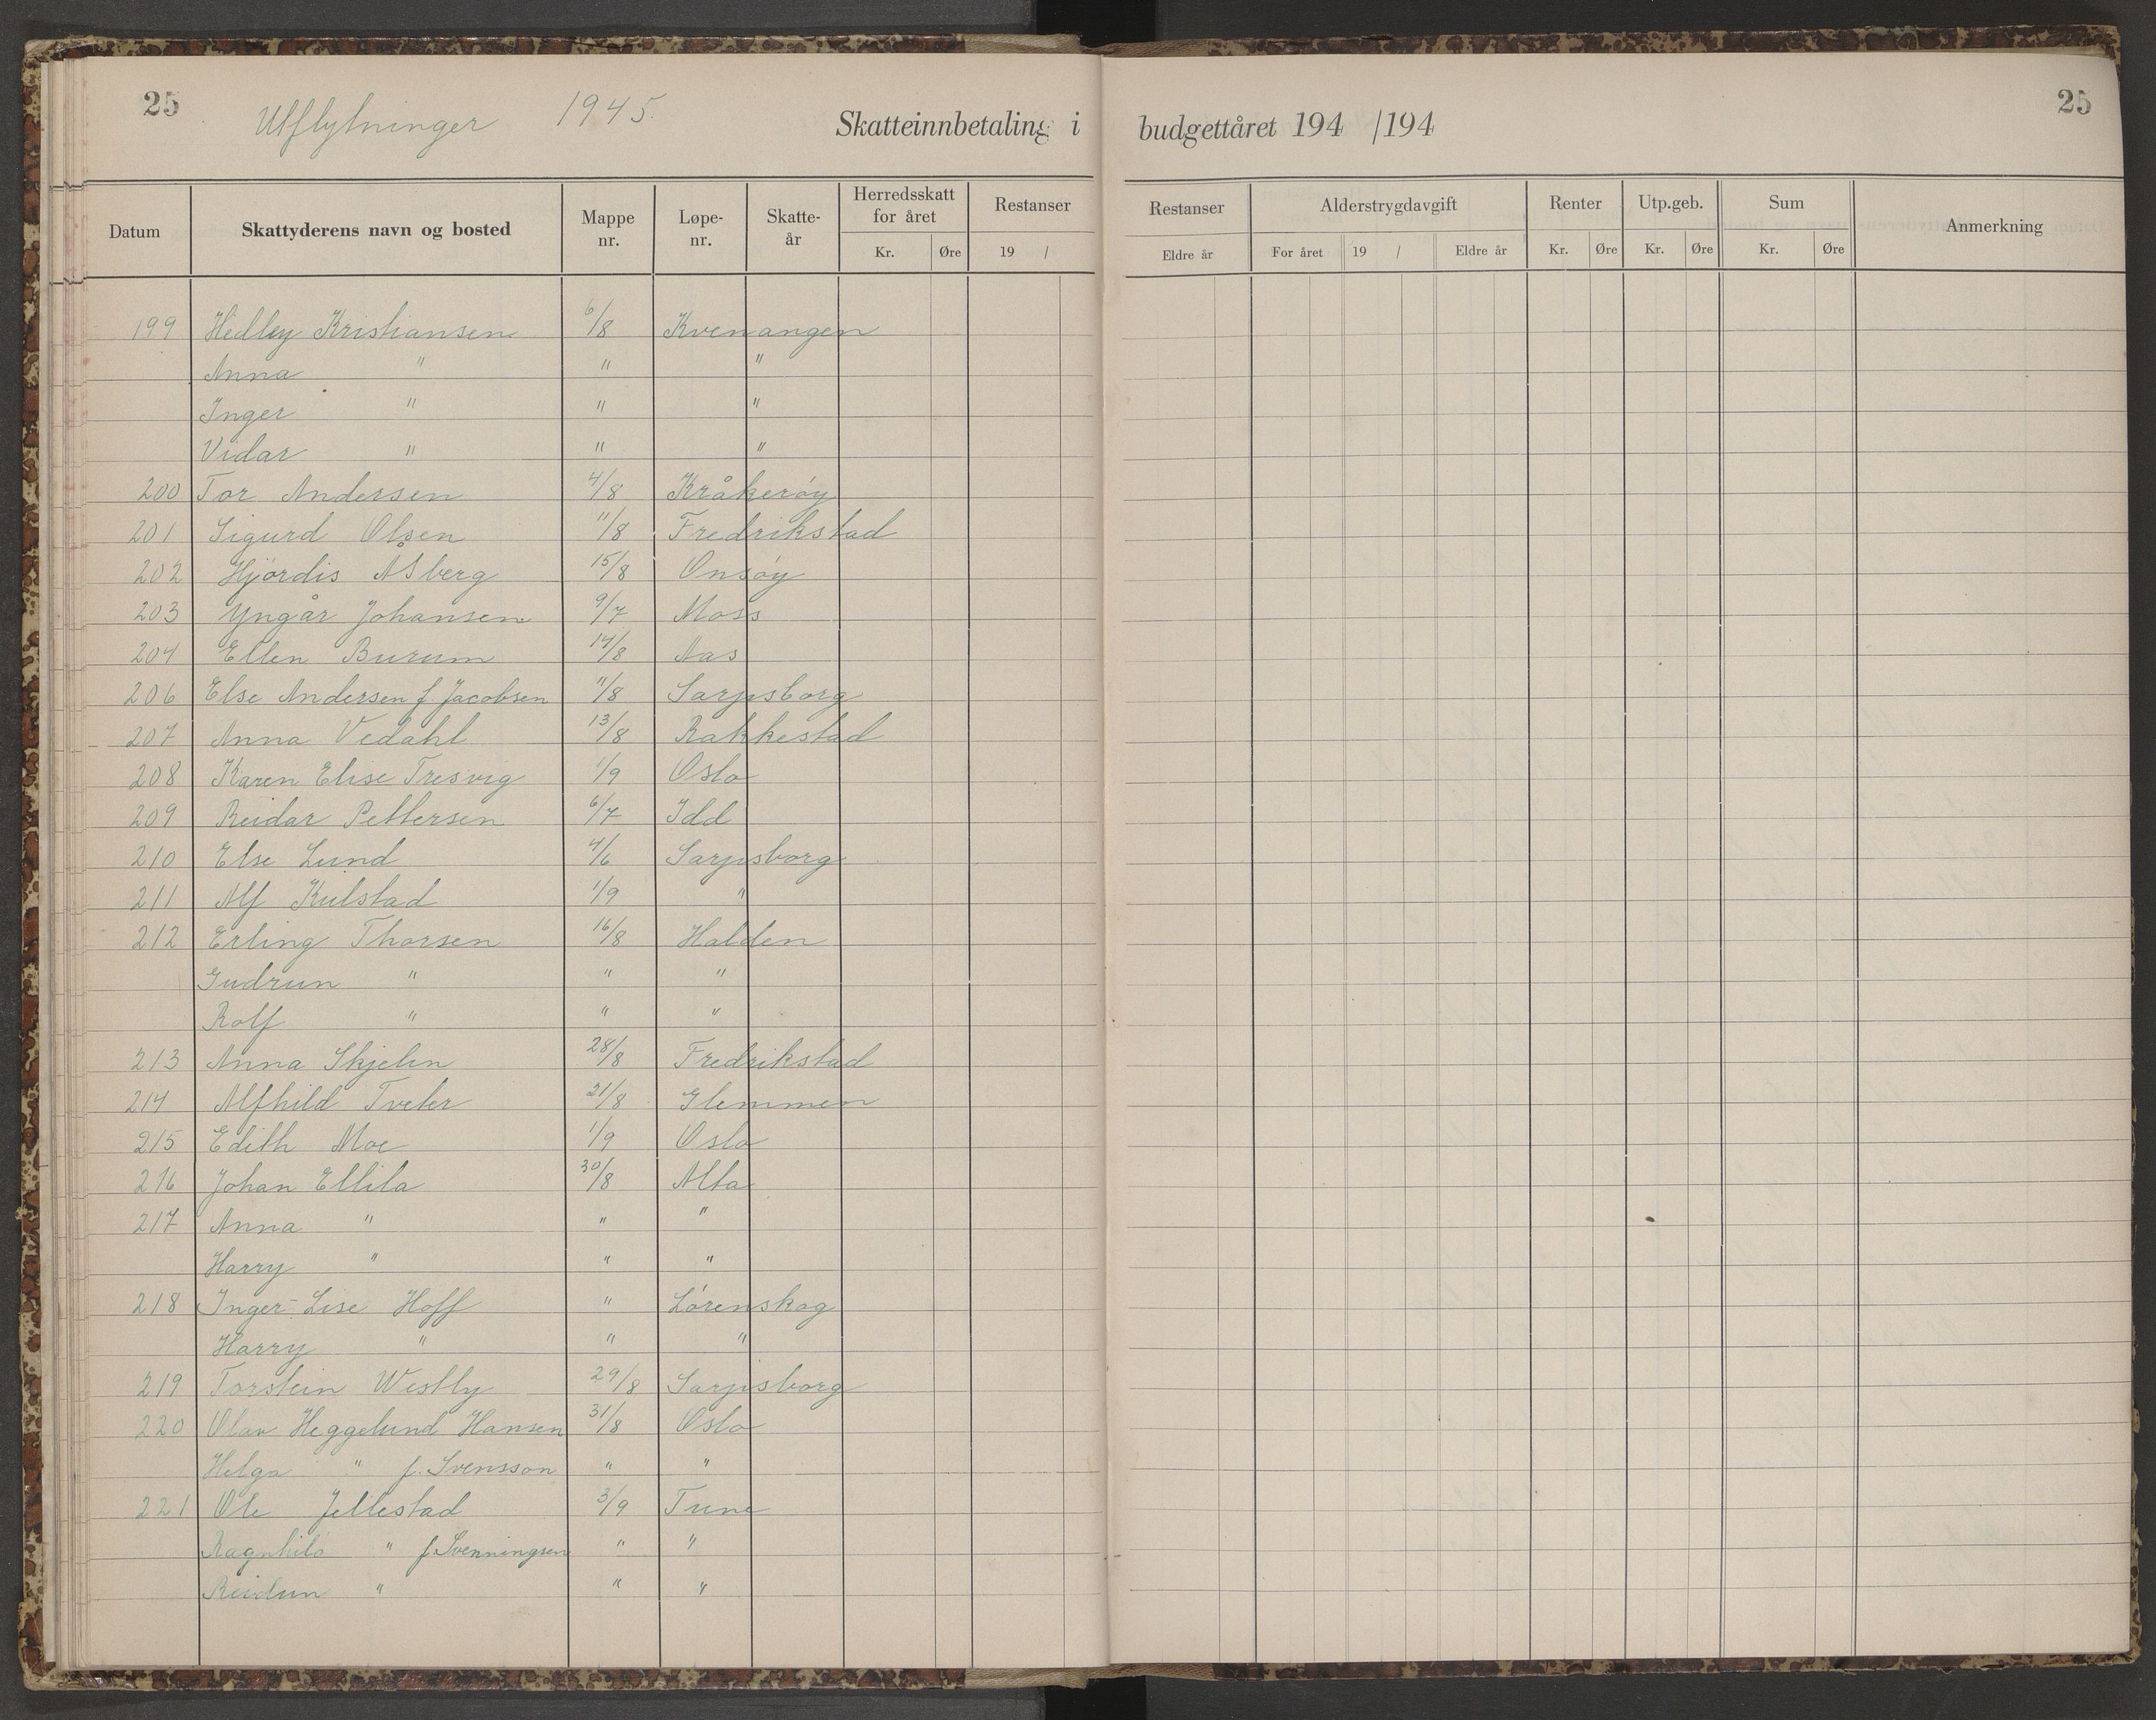 25 Utflytninger 1945. Skatteinnbetaling i budgettåret 194 /194 25
Datum Skattyderens navn og bosted Mappe nr. Løpe-nr. Skatte-år Herredsskatt for året Kr. Øre Restanser 19 / Restanser Eldre år Alderstrygdavgift For året 19 / Eldre år Renter Kr. Øre Utp.geb. Kr. Øre Sum Kr. Øre Anmerkning
199 Hedley Kristiansen 6/8 Kvenangen
Anna " " "
Inger " " "
Vidar " " "
200 Tor Andersen 4/8 Kråkerøy
201 Sigurd Olsen 11/8 Fredrikstad
202 Hjördis Åsberg 15/8 Onsøy
203 Yngår Johansen 9/7 Moss
204 Ellen Burum 14/8 Aas
206 Else Andersen f Jacobsen 11/8 Sarpsborg
207 Anna Vedahl 13/8 Rakkestad
208 Karen Elise Tresvig 1/9 Oslo
209 Reidar Pettersen 6/7 Idd
210 Else Lund 4/6 Sarpsborg
211 Alf Kulstad 1/9 "
212 Erling Thorsen 16/8 Halden
Gudrun " " "
Rolf " " "
213 Anna Skjelin 28/8 Fredrikstad
214 Alfhild Tveter 21/8 Glemmen
215 Edith Moe 1/9 Oslo
216 Johan Ellila 30/8 Alta
217 Anna " " "
Harry " " "
218 Inger-Lise Hoff " Lørenskog
Harry " " "
219 Torstein Westly 29/8 Sarpsborg
220 Olav Heggelund Hansen 31/8 Oslo
Helga " f. Svensson " "
221 Ole Jellestad 3/9 Tune
Ragnhild " f. Svenningsen " "
Reidun " " "